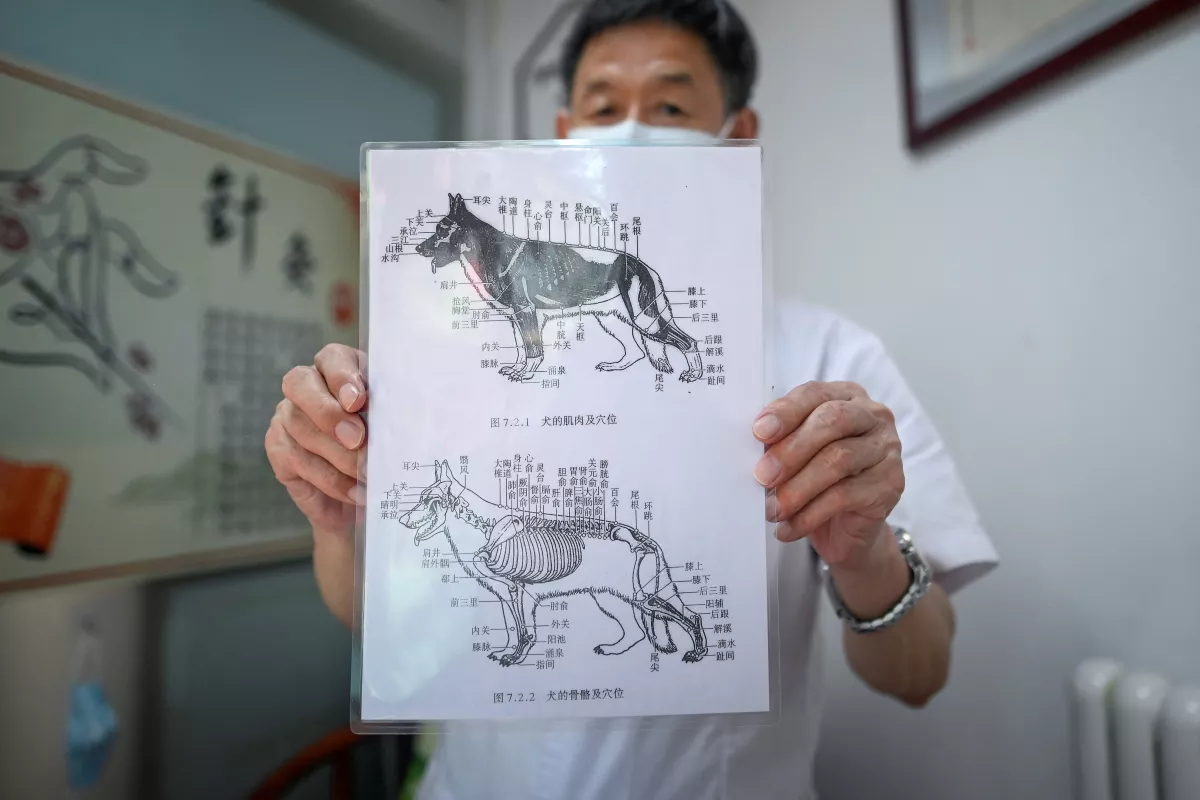 针
灸
耳尖
上关
下关
承泣
三江
山根
水沟
大椎
陶道
身柱
心俞
灵台
中枢
悬枢
命门
阳关
关后
百会
环跳
尾根
肩井
抢风
胸堂
肘俞
前三里
内关
膝脉
中脘
天枢
外关
涌泉
指间
膝上
膝下
后三里
后跟
解溪
滴水
趾间
尾尖
图 7.2.1 犬的肌肉及穴位
耳尖
翳风
上关
下关
睛明
承泣
大椎
陶道
肺俞
身柱
厥阴俞
心俞
督俞
灵台
膈俞
肝俞
胆俞
脾俞
胃俞
三焦俞
肾俞
大肠俞
关元俞
小肠俞
膀胱俞
百会
尾根
环跳
肩井
肩外髃
郗上
前三里
内关
膝脉
肘俞
外关
阳池
涌泉
指间
膝上
膝下
后三里
阳辅
后跟
解溪
滴水
趾间
尾尖
图 7.2.2 犬的骨骼及穴位